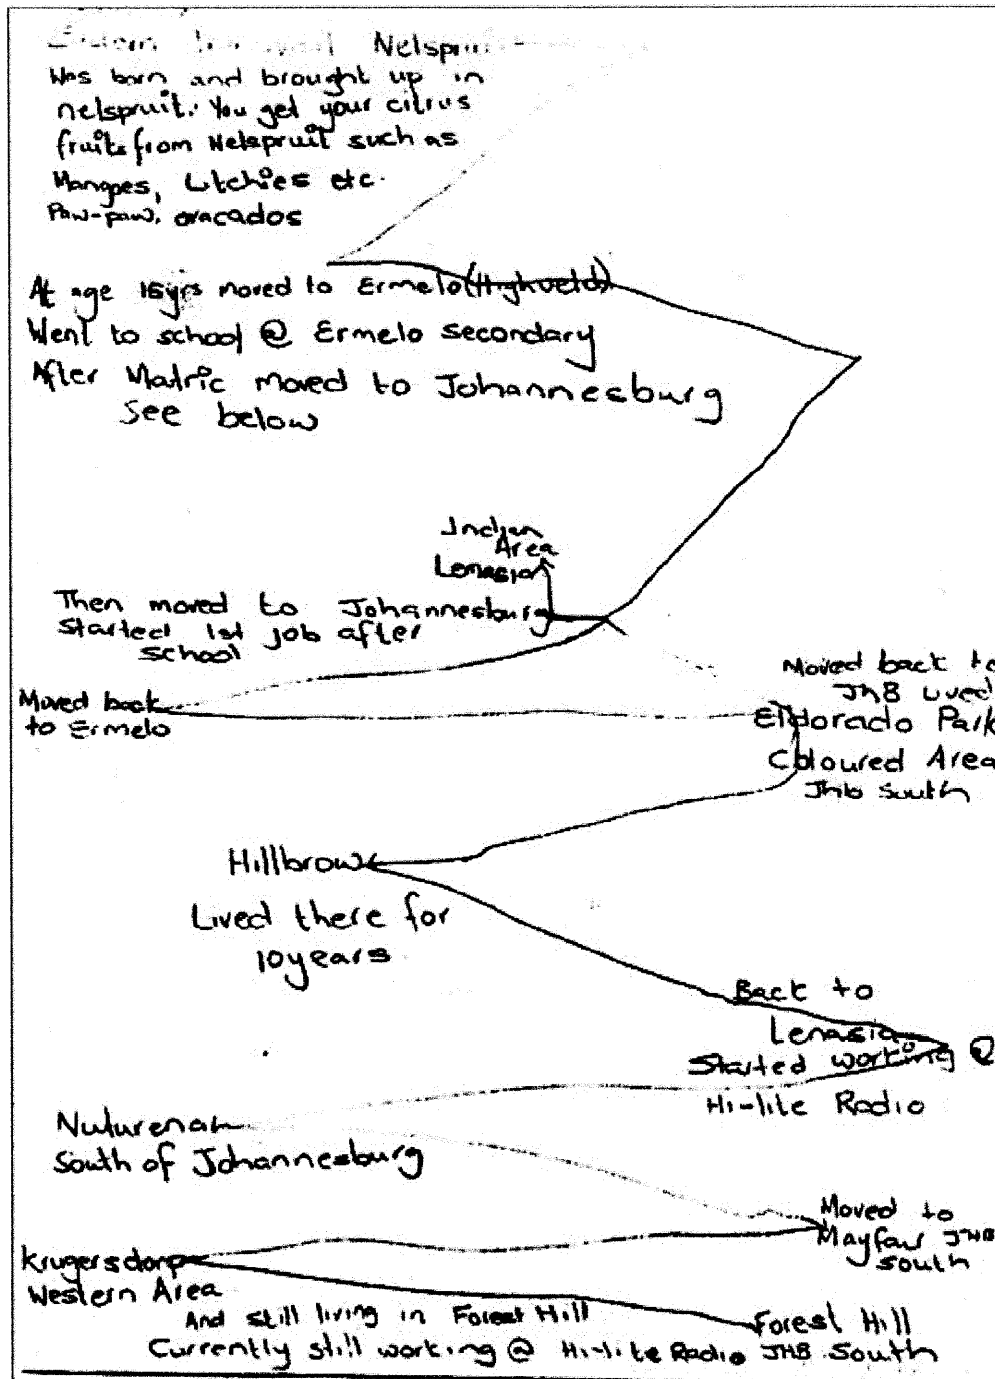 Eastern Transvaal Nelspruit
Was born and brought up in
nelspruit. You get your citrus
fruits from Nelspruit such as
Mangoes, Litchies etc.
Paw-paw, avacados
At age 16yrs moved to Ermelo (Highveld)
Went to school @ Ermelo secondary
After Matric moved to Johannesburg
See below
Indian
Area
Lenasia
Then moved to Johannesburg
Started 1st job after
school
Moved back
to Ermelo
Moved back to
JHB Lived
Eldorado Park
Coloured Area
Jhb South
Hillbrow
Lived there for
10years
Back to
Lenasia
Started working @
Hi-lite Radio
Nuturenah
South of Johannesburg
Moved to
Mayfair JHB
South
Krugersdorp
Western Area
Forest Hill
And still living in Forest Hill
Currently still working @ Hi-lite Radio JHB South